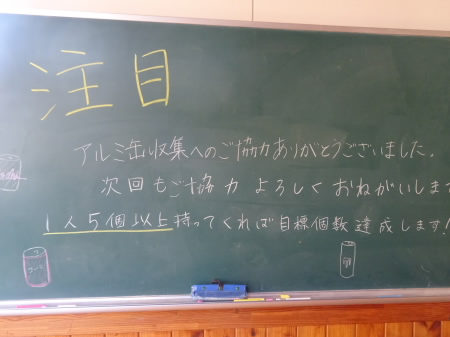 注目
アルミ缶収集へのご協力ありがとうございました。
次回もご協力よろしくおねがいします
1人5個以上持ってくれば目標個数達成します!